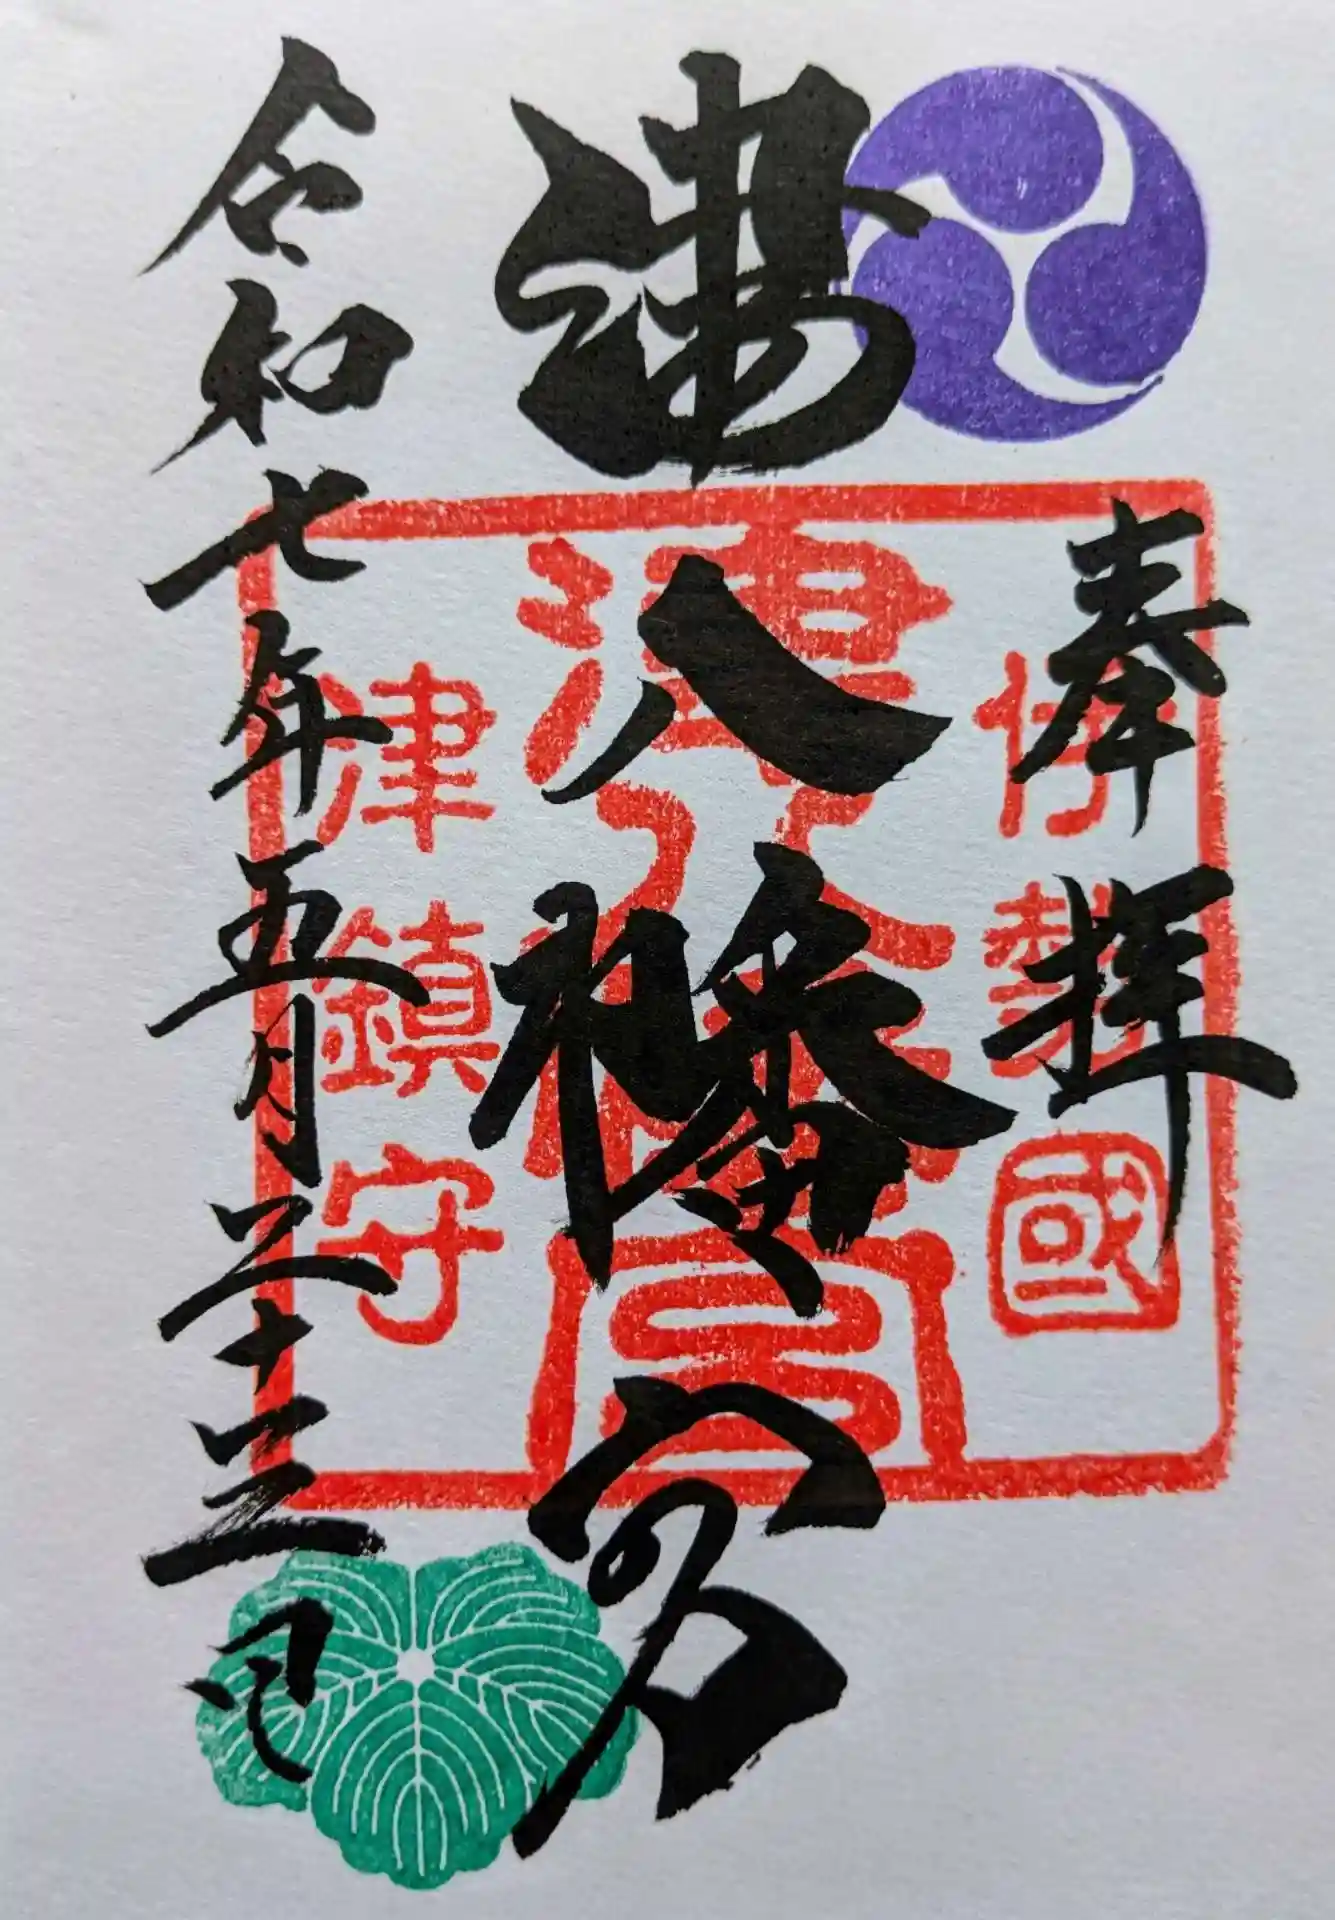 奉拝
伊勢國
津八幡宮
津八幡宮
津鎮守
令和七年五月二十三日